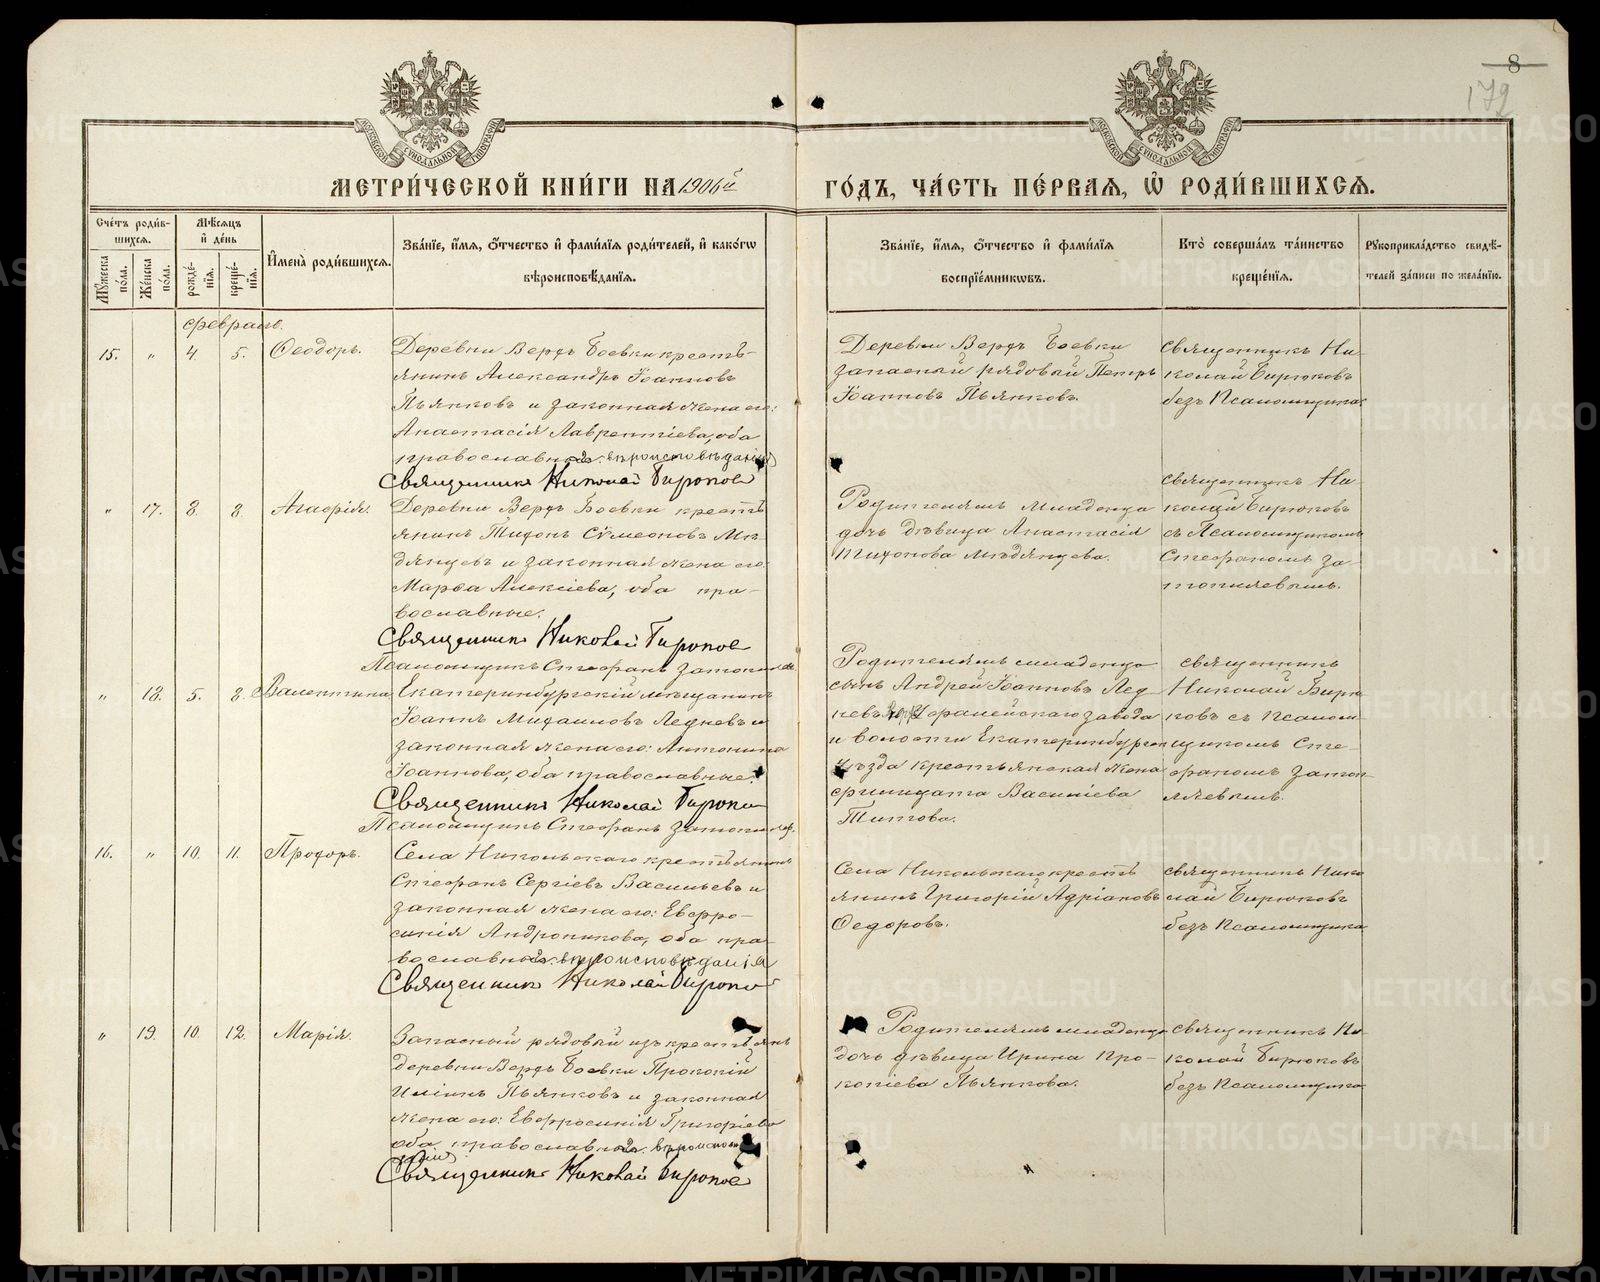 8
172
МЕТРИ́ЧЕСКОЙ КНИ́ГИ НА 1906й
ГО́ДЪ, ЧА́СТЬ ПЕ́РВАЯ, Ѡ҆ РОДИ́ВШИХСѦ.
Сче́тъ роди́в-
шихсѧ.
Мѣ́сѧцъ
и҆ де́нь
И҆мена̀ роди́вшихсѧ.
Зва́нїе, и҆́мѧ, ѻ҆́тчество и҆ фами́лїѧ роди́телей, и҆ како́гѡ
вѣроисповѣ́данїѧ.
Мꙋ́жеска
по́ла.
Же́нска
по́ла.
рожде́-
нїѧ.
креще́-
нїѧ.
Зва́нїе, и҆́мѧ, ѻ҆́тчество и҆ фами́лїѧ
воспрїе́мникѡвъ.
Кто̀ соверша́лъ та́инство
креще́нїѧ.
Рꙋкоприкла́дство свидѣ́-
телей за́писи по жела́нїю.
Февраль.
15. „ 4. 5. Ѳеодоръ.
Деревни Верхъ Боевки кресть-
янинъ Александръ Іоанновъ
Пьянковъ и законная жена его:
Анастасія Лаврентіева, оба
православнаго вѣроисповѣданія
Священникъ Николай Бирюковъ
Деревни Верхъ Боевки
запасный рядовый Петръ
Іоанновъ Пьянковъ.
Священникъ Ни-
колай Бирюковъ
безъ Псаломщика
„ 17. 8. 8. Агаѳія.
Деревни Верхъ Боевки кресть
янинъ Тихонъ Сѵмеоновъ Мѣ-
дянцевъ и законная жена его
Марѳа Алексіева, оба пра-
вославные.
Священникъ Николай Бирюковъ
Псаломщикъ Стефанъ Затопляев
Родителямъ младенца
дочь дѣвица Анастасія
Тихонова Мѣдянцева.
Священникъ Ни-
колай Бирюковъ
съ Псаломщикомъ
Стефаномъ За-
топляевымъ.
„ 18. 5. 8. Валентина
Екатеринбургскій мѣщанинъ
Іоаннъ Михаиловъ Ледневъ и
законная жена его: Антонина
Іоаннова, оба православные.
Священникъ Николай Бирюков
Псаломщикъ Стефанъ Затопляев.
Родителямъ младенца
сынъ Андрей Іоанновъ Лед-
невъ
и волости Екатеринбургск
уѣзда крестьянская жена
Филицата Василіева
Титова.
Священникъ
Николай Бирю
ковъ съ Псалом
щикомъ Сте-
фаномъ Затоп-
ляевымъ.
16. „ 10. 11. Прохоръ.
Села Никольскаго крестьянинъ
Стефанъ Сергіевъ Васильевъ и
законная жена его: Евфро-
синія Андроникова, оба пра-
вославнаго вѣроисповѣданія
Священникъ Николай Бирюков
Села Никольскаго кресть
янинъ Григорій Адріановъ
Ѳедоровъ.
Священникъ Нико
лай Бирюковъ
безъ Псаломщика
„ 19. 10. 12. Марія.
Запасный рядовый изъ крестьянъ
деревни Верхъ Боевки Прокопій
Иліинъ Пьянковъ и законная
жена его: Евфросинія Григоріева
оба православнаго вѣроиспов
Священникъ Николай Бирюковъ
Родителямъ младенца
дочь дѣвица Ирина Про-
копіева Пьянкова.
Священникъ Ни-
колай Бирюковъ
безъ Псаломщика
METRIKI.GASO-URAL.RU